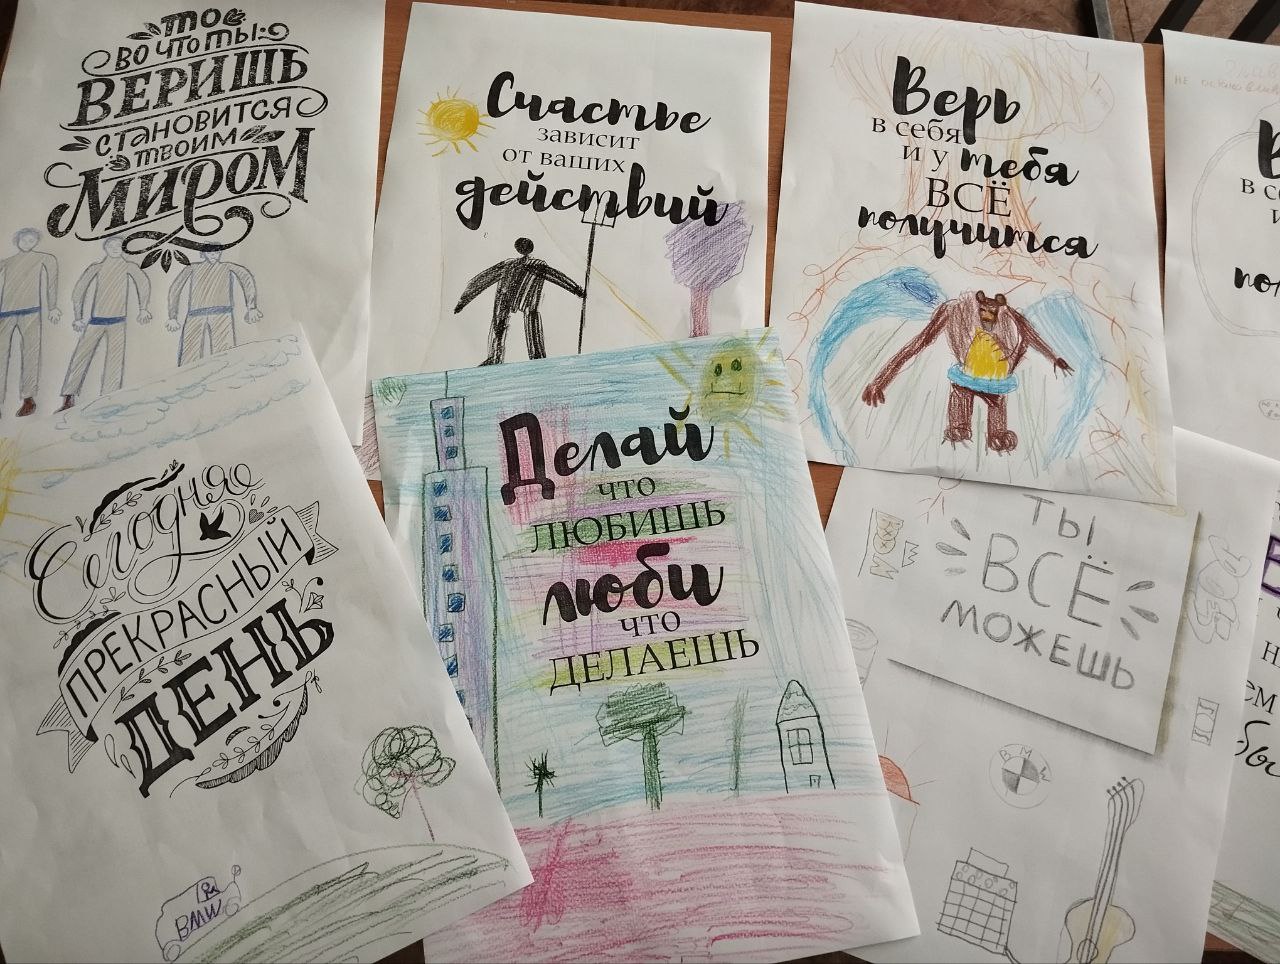 ТО
ВО ЧТО ТЫ
ВЕРИШЬ
СТАНОВИТСЯ
ТВОИМ
МИРОМ
Счастье
зависит
от ваших
действий
Верь
в себя
и у тебя
ВСЁ
получится
не останавлив
В
в се
и
по
Сегодня
ПРЕКРАСНЫЙ
ДЕНЬ
BMW
Делай
что
ЛЮБИШЬ
люби
что
ДЕЛАЕШЬ
ТЫ
ВСЁ
МОЖЕШЬ
BMW
н
ем